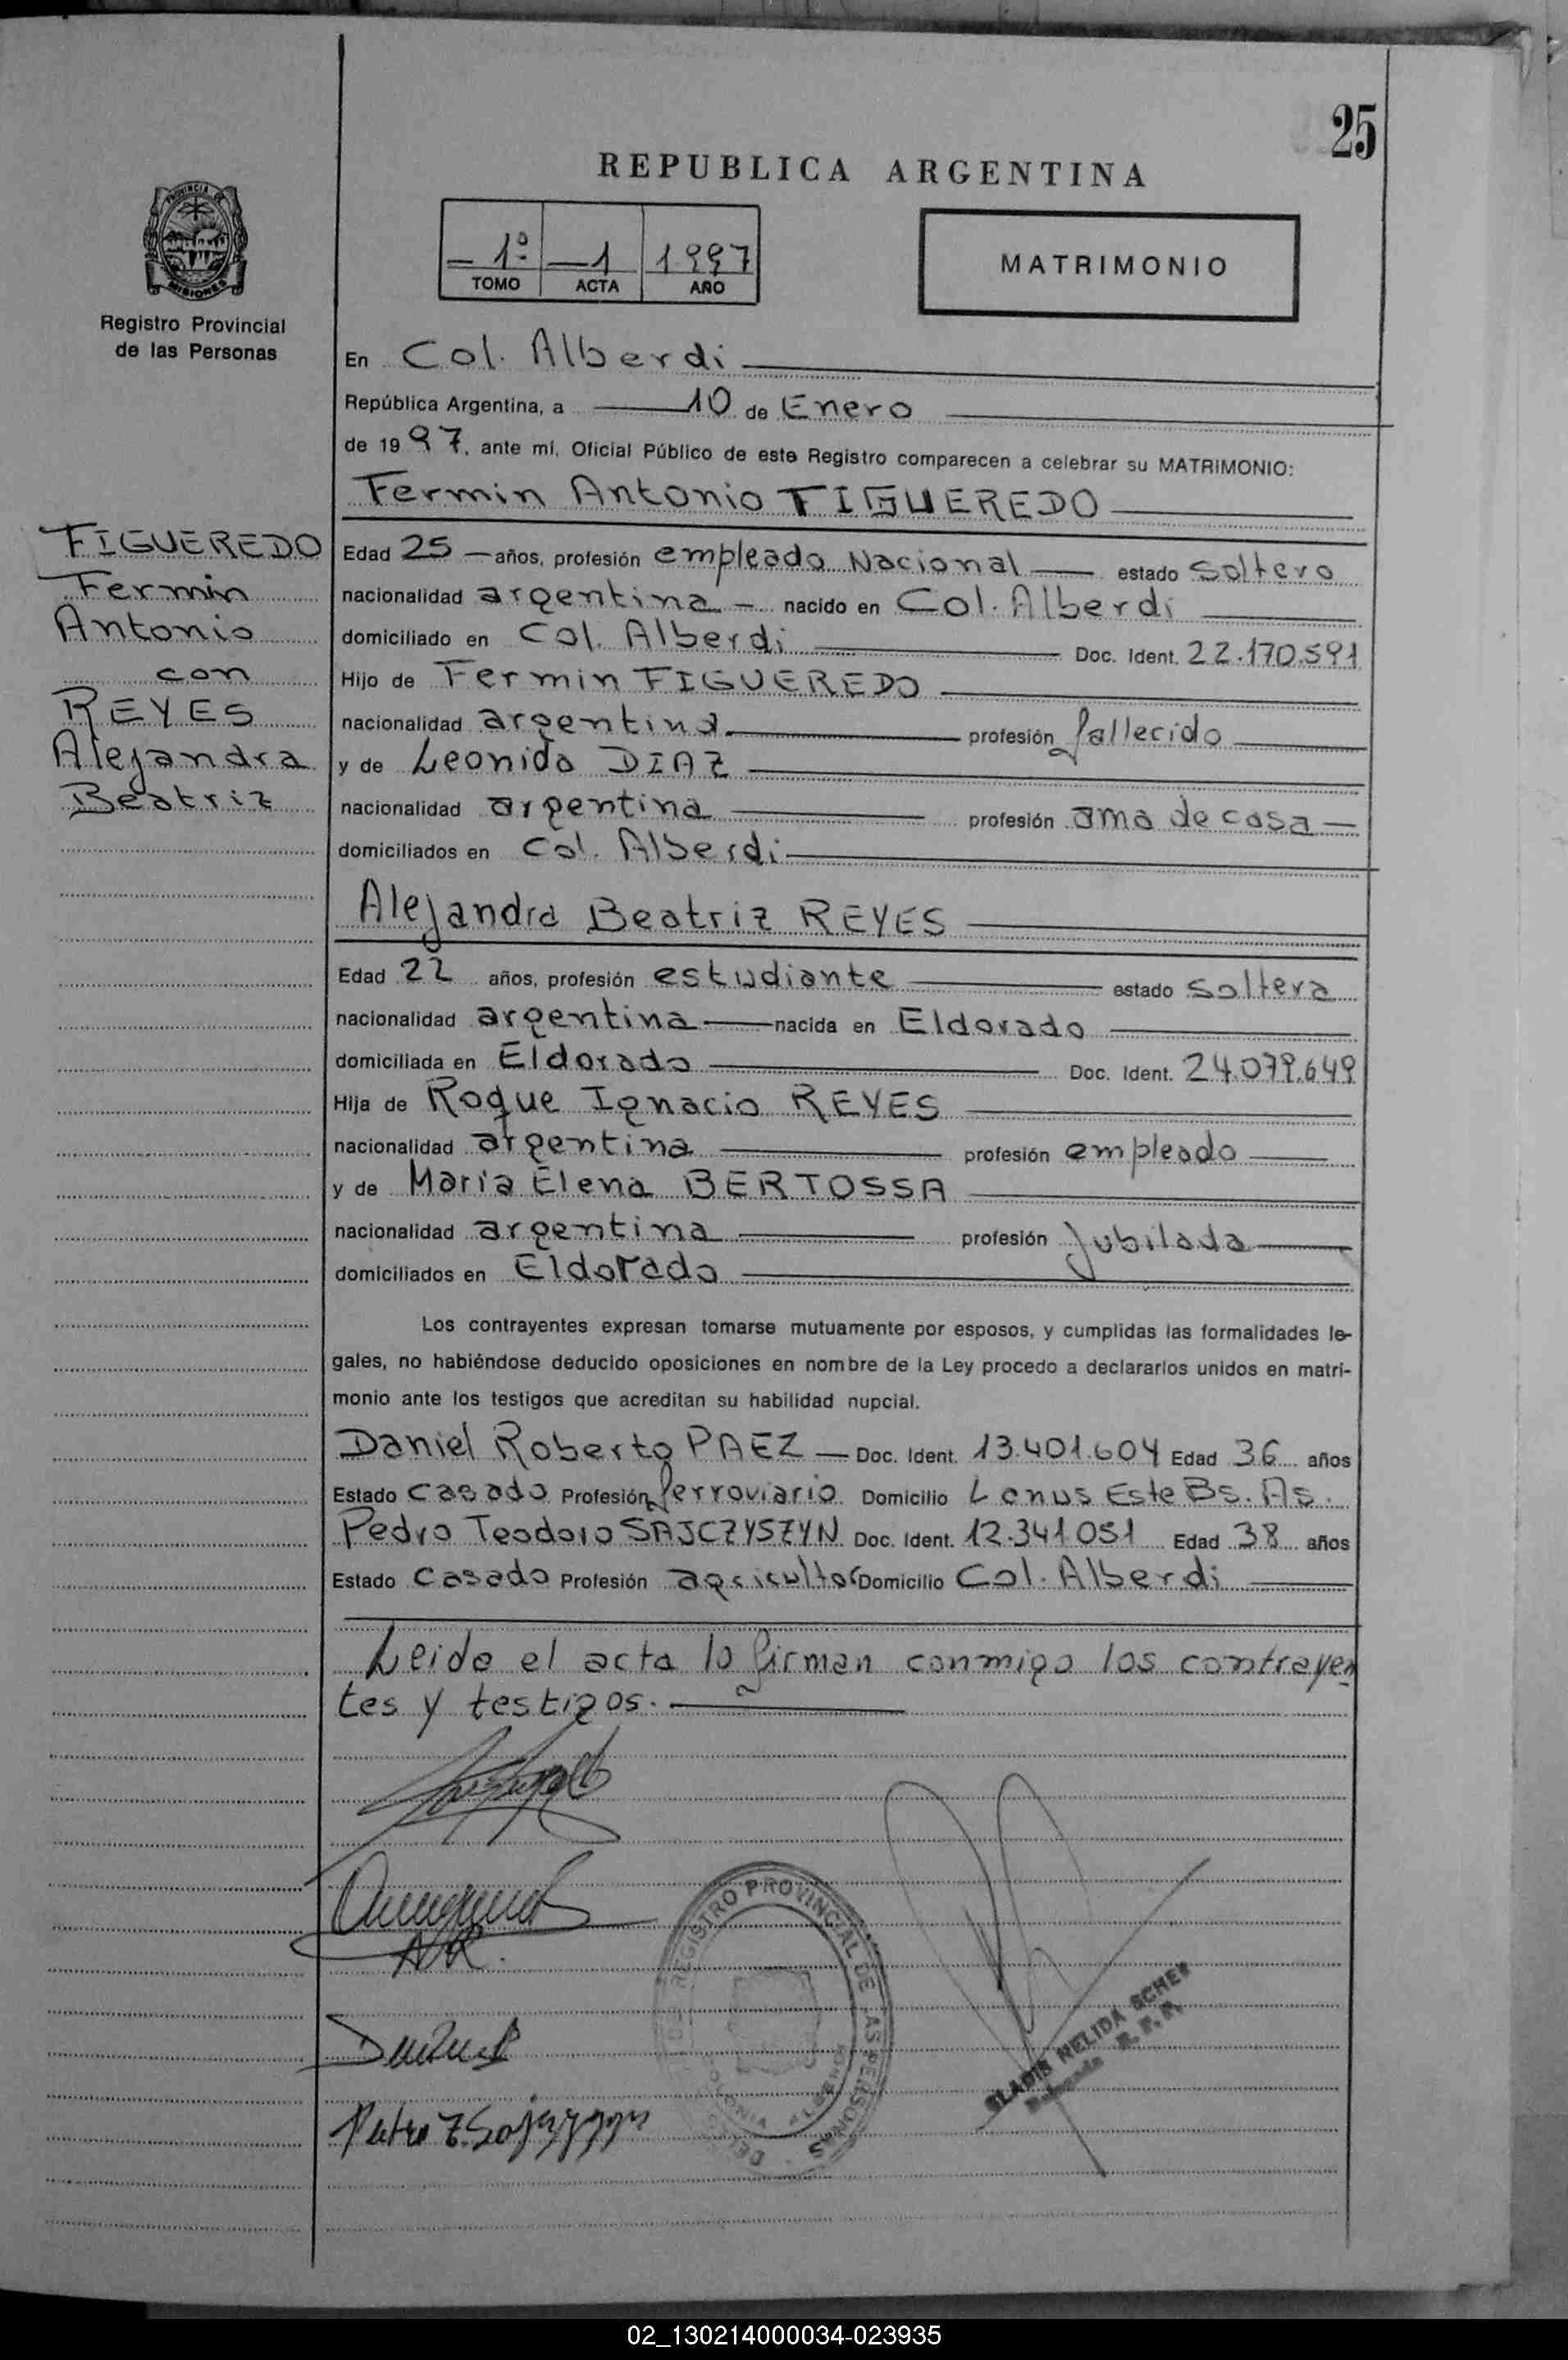 25
REPUBLICA ARGENTINA
PROVINCIA DE
MISIONES
Registro Provincial
de las Personas
1º 1 1997
TOMO ACTA AÑO
MATRIMONIO
En Col. Alberdi
República Argentina, a 10 de Enero
de 1997, ante mí, Oficial Público de este Registro comparecen a celebrar su MATRIMONIO:
Fermin Antonio FIGUEREDO
FIGUEREDO
Fermin
Antonio
con
REYES
Alejandra
Beatriz
Edad 25 años, profesión empleado Nacional estado soltero
nacionalidad argentina nacido en Col. Alberdi
domiciliado en Col. Alberdi Doc. Ident. 22.170.591
Hijo de Fermin FIGUEREDO
nacionalidad argentina profesión fallecido
y de Leonida DIAZ
nacionalidad argentina profesión ama de casa
domiciliados en Col. Alberdi
Alejandra Beatriz REYES
Edad 22 años, profesión estudiante estado soltera
nacionalidad argentina nacida en Eldorado
domiciliada en Eldorado Doc. Ident. 24.079.649
Hija de Roque Ignacio REYES
nacionalidad argentina profesión empleado
y de Maria Elena BERTOSSA
nacionalidad argentina profesión jubilada
domiciliados en Eldorado
Los contrayentes expresan tomarse mutuamente por esposos, y cumplidas las formalidades le-
gales, no habiéndose deducido oposiciones en nombre de la Ley procedo a declararlos unidos en matri-
monio ante los testigos que acreditan su habilidad nupcial.
Daniel Roberto PAEZ Doc. Ident. 13.401.604 Edad 36 años
Estado casado Profesión ferroviario Domicilio Lanus Este Bs. As.
Pedro Teodoro SAJCZYSZYN Doc. Ident. 12.341051 Edad 38 años
Estado casado Profesión agricultor Domicilio Col. Alberdi
Leida el acta la firman conmigo los contrayen
tes y testigos.
AR.
REGISTRO PROVINCIAL DE LAS PERSONAS
GLADIS NELIDA SCHER
Delegada R. P. P.
02_130214000034-023935